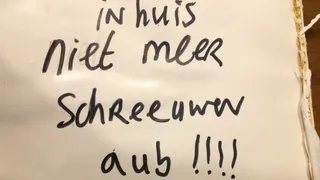 in huis
niet meer
schreeuwen
aub !!!!